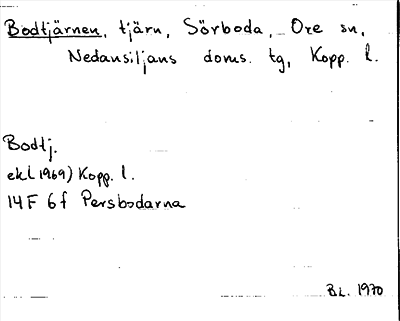 Bodtjärnen, tjärn, Sörboda, Ore sn,
Nedansiljans doms. tg, Kopp. l.
Bodtj.
ek(1969) Kopp. l.
14F 6f Persbodarna
BL. 1970